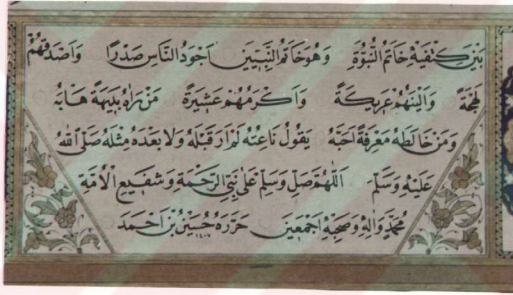 بَيْنَ كَتْفَيْهِ خَاتَمُ النُّبُوَّةِ وَهُوَ خَاتَمُ النَّبِيِّينَ اَجْوَدُ النَّاسِ صَدْرًا وَاَصْدَقُهُمْ
لَهْجَةً وَاَلْيَنُهُمْ عَرِيكَةً وَاَكْرَمُهُمْ عَشِيرَةً مَنْ رَاٰهُ بَدِيهَةً هَابَهُ
وَمَنْ خَالَطَهُ مَعْرِفَةً اَحَبَّهُ يَقُولُ نَاعِتُهُ لَمْ اَرَ قَبْلَهُ وَلَا بَعْدَهُ مِثْلَهُ صَلَّى اللهُ
عَلَيْهِ وَسَلَّمَ اَللّٰهُمَّ صَلِّ وَسَلِّمْ عَلَى نَبِيِّ الرَّحْمَةِ وَشَفِيعِ الْاُمَّةِ
مُحَمَّدٍ وَاٰلِهِ وَصَحْبِهِ اَجْمَعِينَ حَرَّرَهُ حُسَيْنُ بْنُ اَحْمَدَ